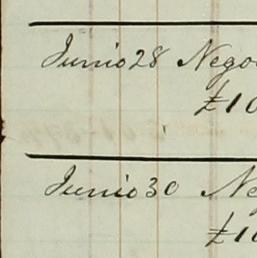 Junio 28 Nego
£10
Junio 30 Ne
£10